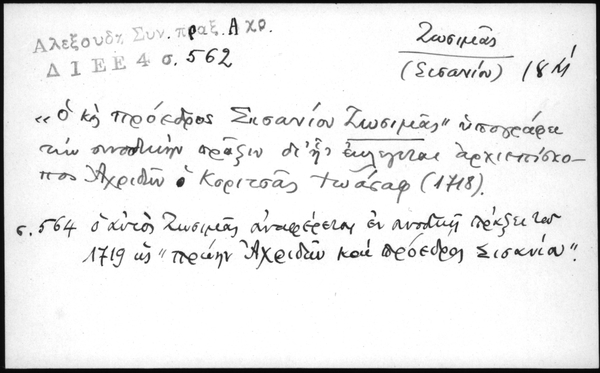 Αλεξουδη Συν. πραξ. Αχρ.
Δ Ι Ε Ε 4 σ. 562
Ζωσιμᾶς
(Σισανίου) 18
"ὁ καὶ πρόεδρος Σισανίου Ζωσιμᾶς" ὑπογράφει
τὴν συνοδικὴν πρᾶξιν δι' ἧς ἐκλέγεται ἀρχιεπίσκο-
πος Ἀχριδῶν ὁ Κοριτσᾶς Ἰωάσαφ (1718).
σ. 564 ὁ αὐτὸς Ζωσιμᾶς ἀναφέρεται ἐν συνοδικῇ πράξει του
1719 ὡς "πρώην Ἀχριδῶν καὶ πρόεδρος Σισανίου".